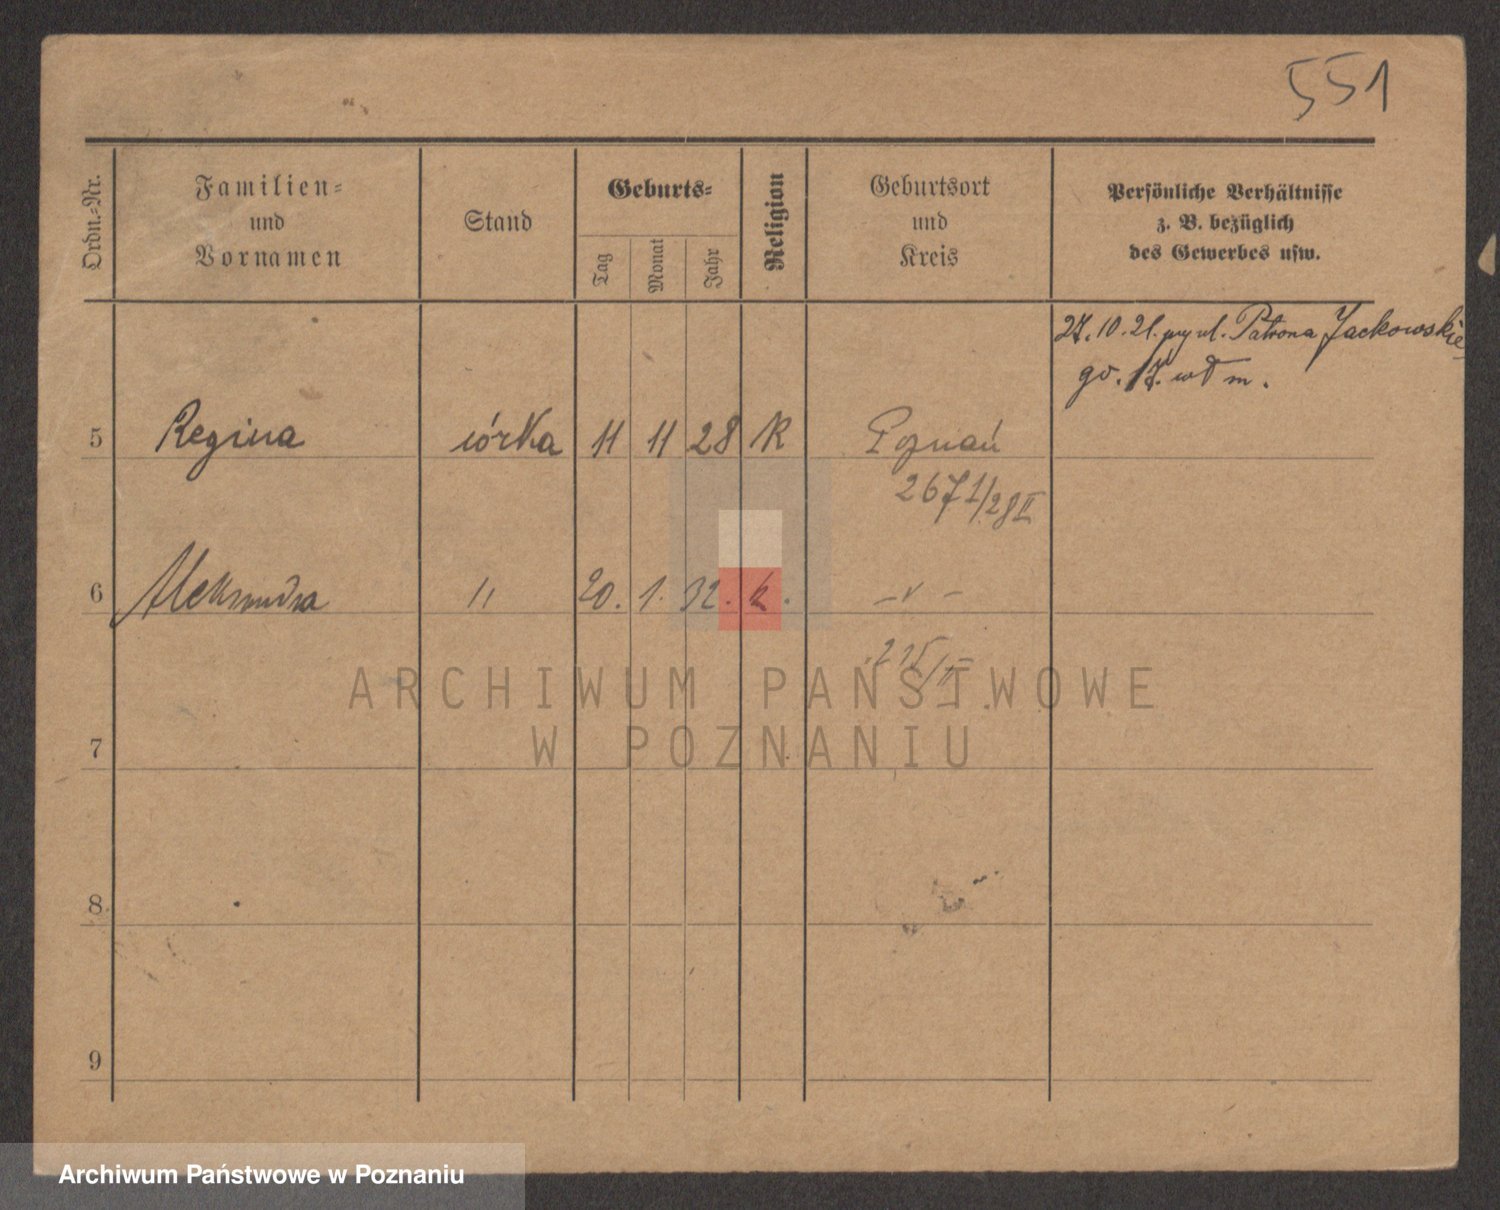 551
Ordn.-Nr.
Familien-
und
Vornamen
Stand
Geburts-
Tag
Monat
Jahr
Religion
Geburtsort
und
Kreis
Persönliche Verhältnisse
z. B. bezüglich
des Gewerbes usw.
27.10.21. przy ul. Patrona Jackowskie
go. 17. wł m.
5 Regina córka 11 11 28 K Poznań
2671/28 II
6 Aleksandra " 20. 1. 32. k. - " -
215/II
7
8
9
ARCHIWUM PAŃSTWOWE
W POZNANIU
Archiwum Państwowe w Poznaniu